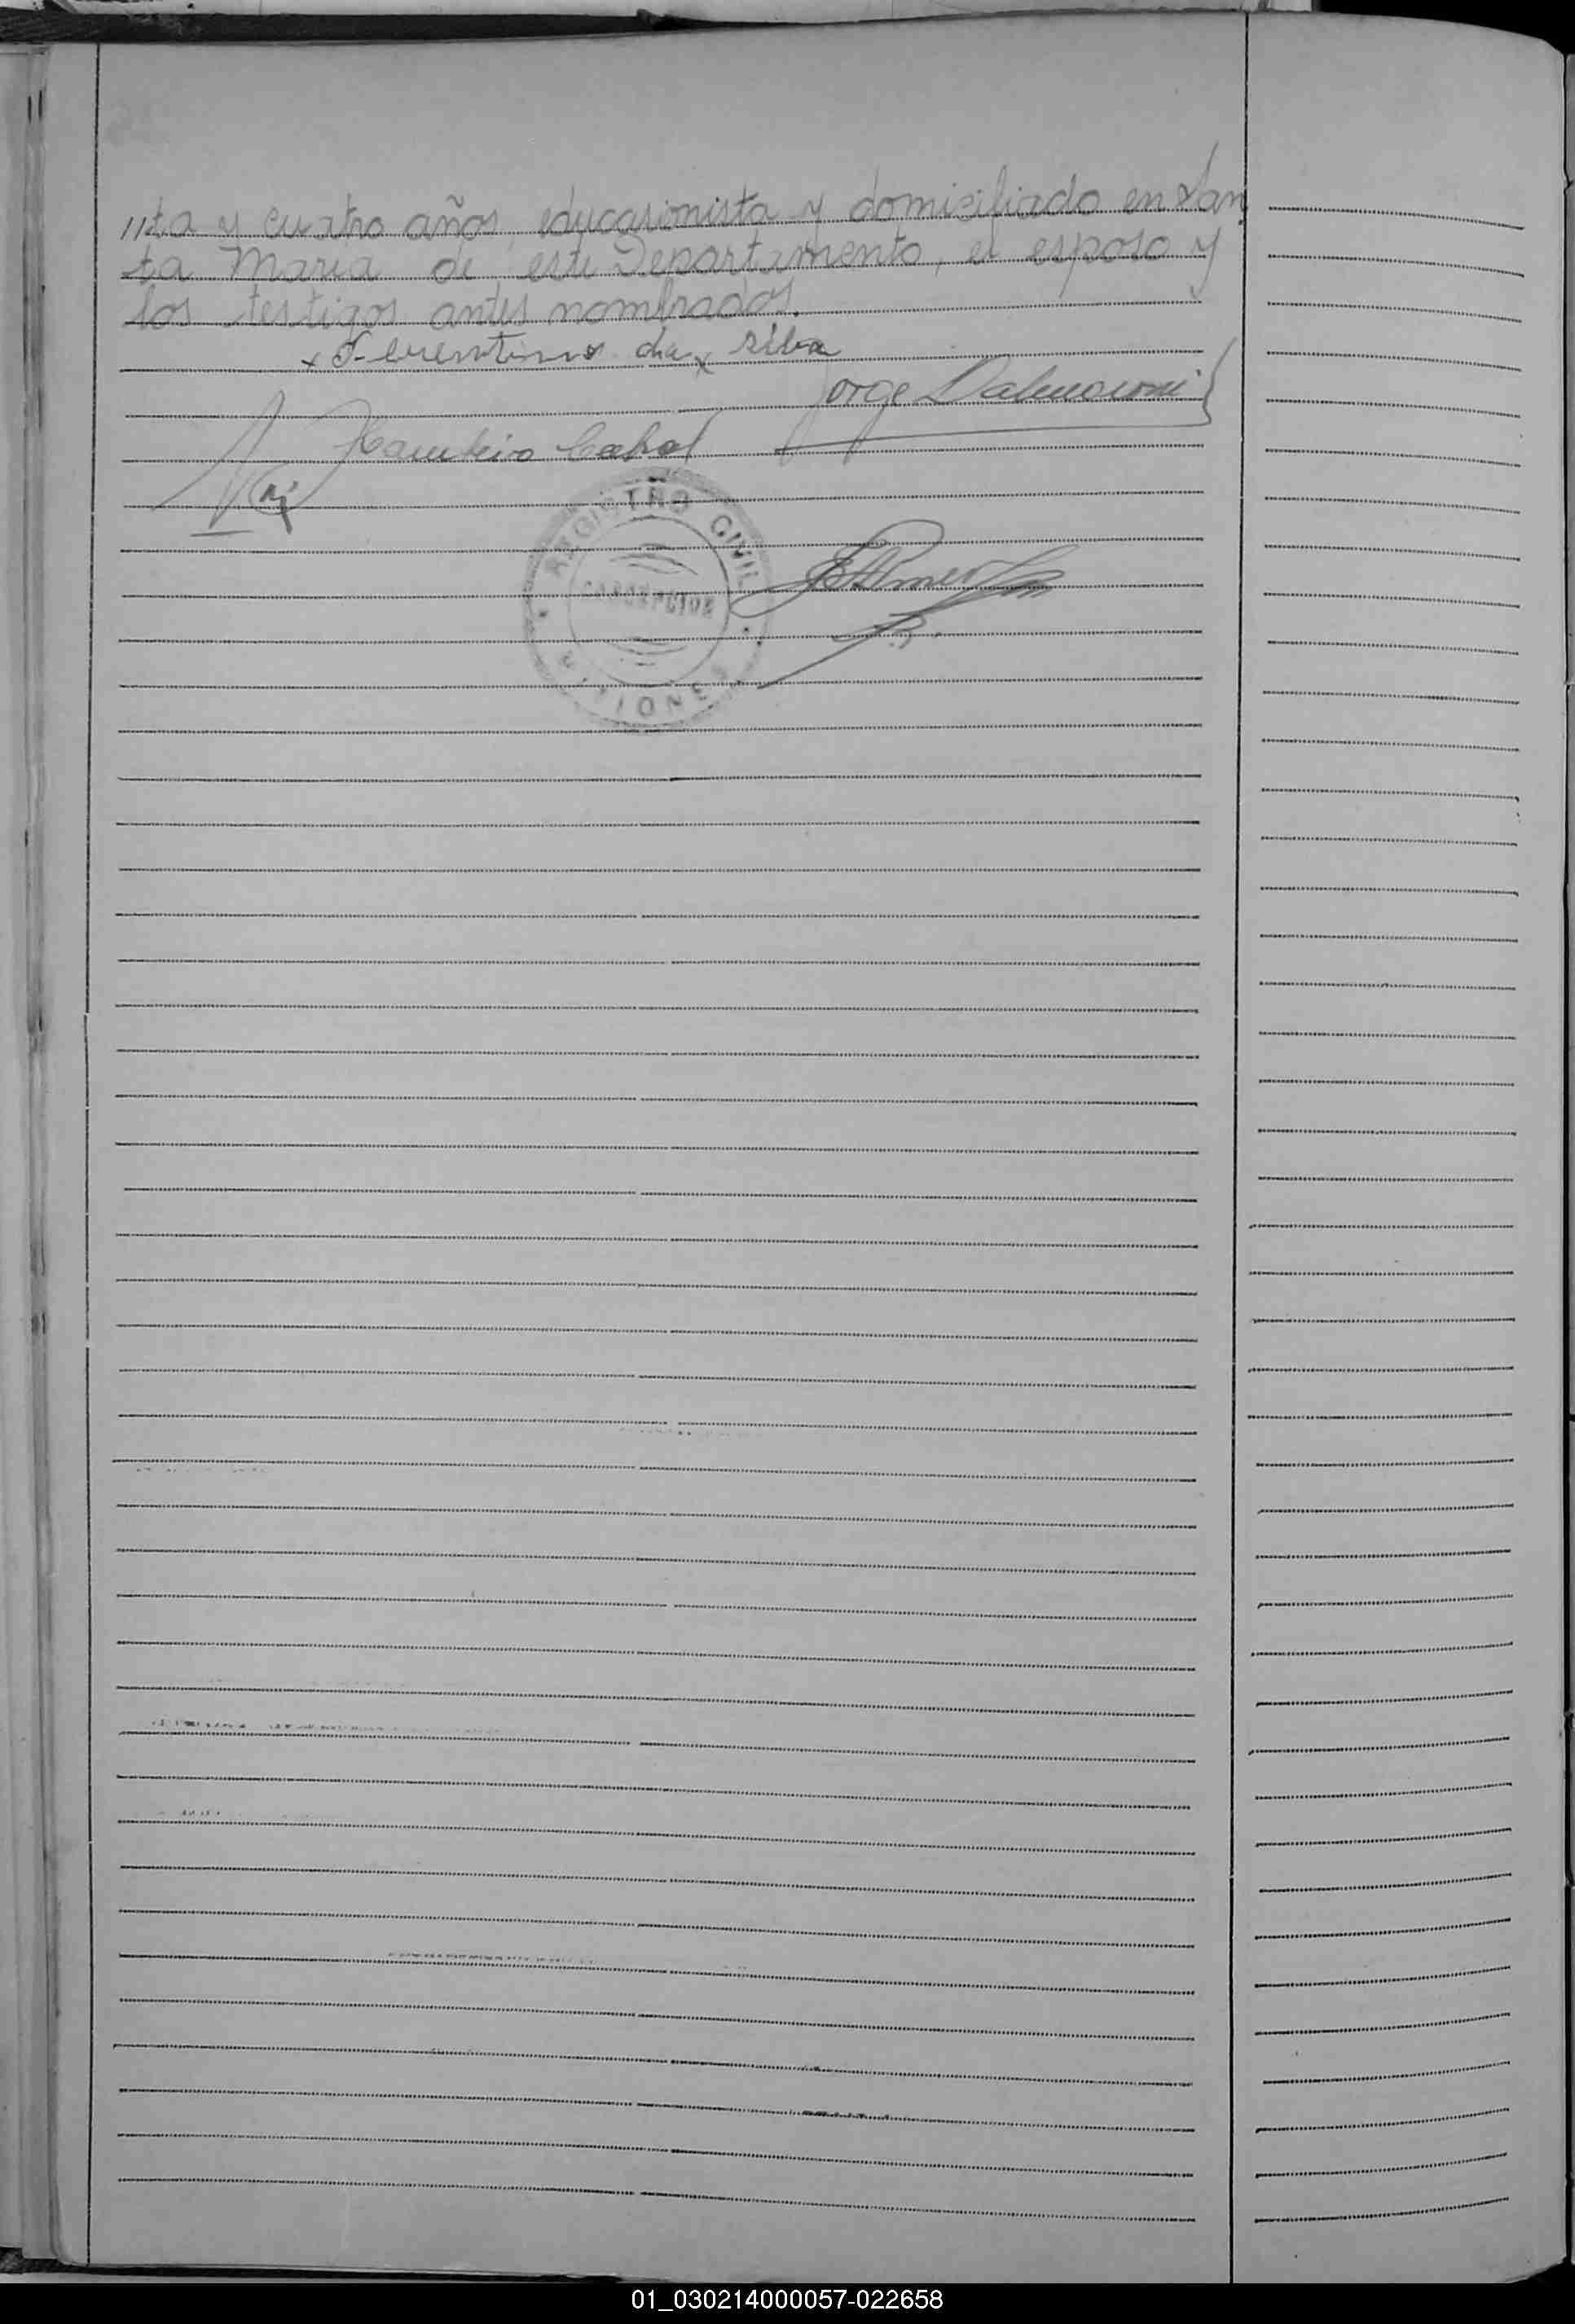 //ta y cuatro años, educasionista y domiciliado en San
ta Maria de este Departamento, el esposo y
los testigos antes nombrados.
x da x silva
Jorge
Cabral
REGISTRO CIVIL
CONCEPCION
MISIONES
01_030214000057-022658